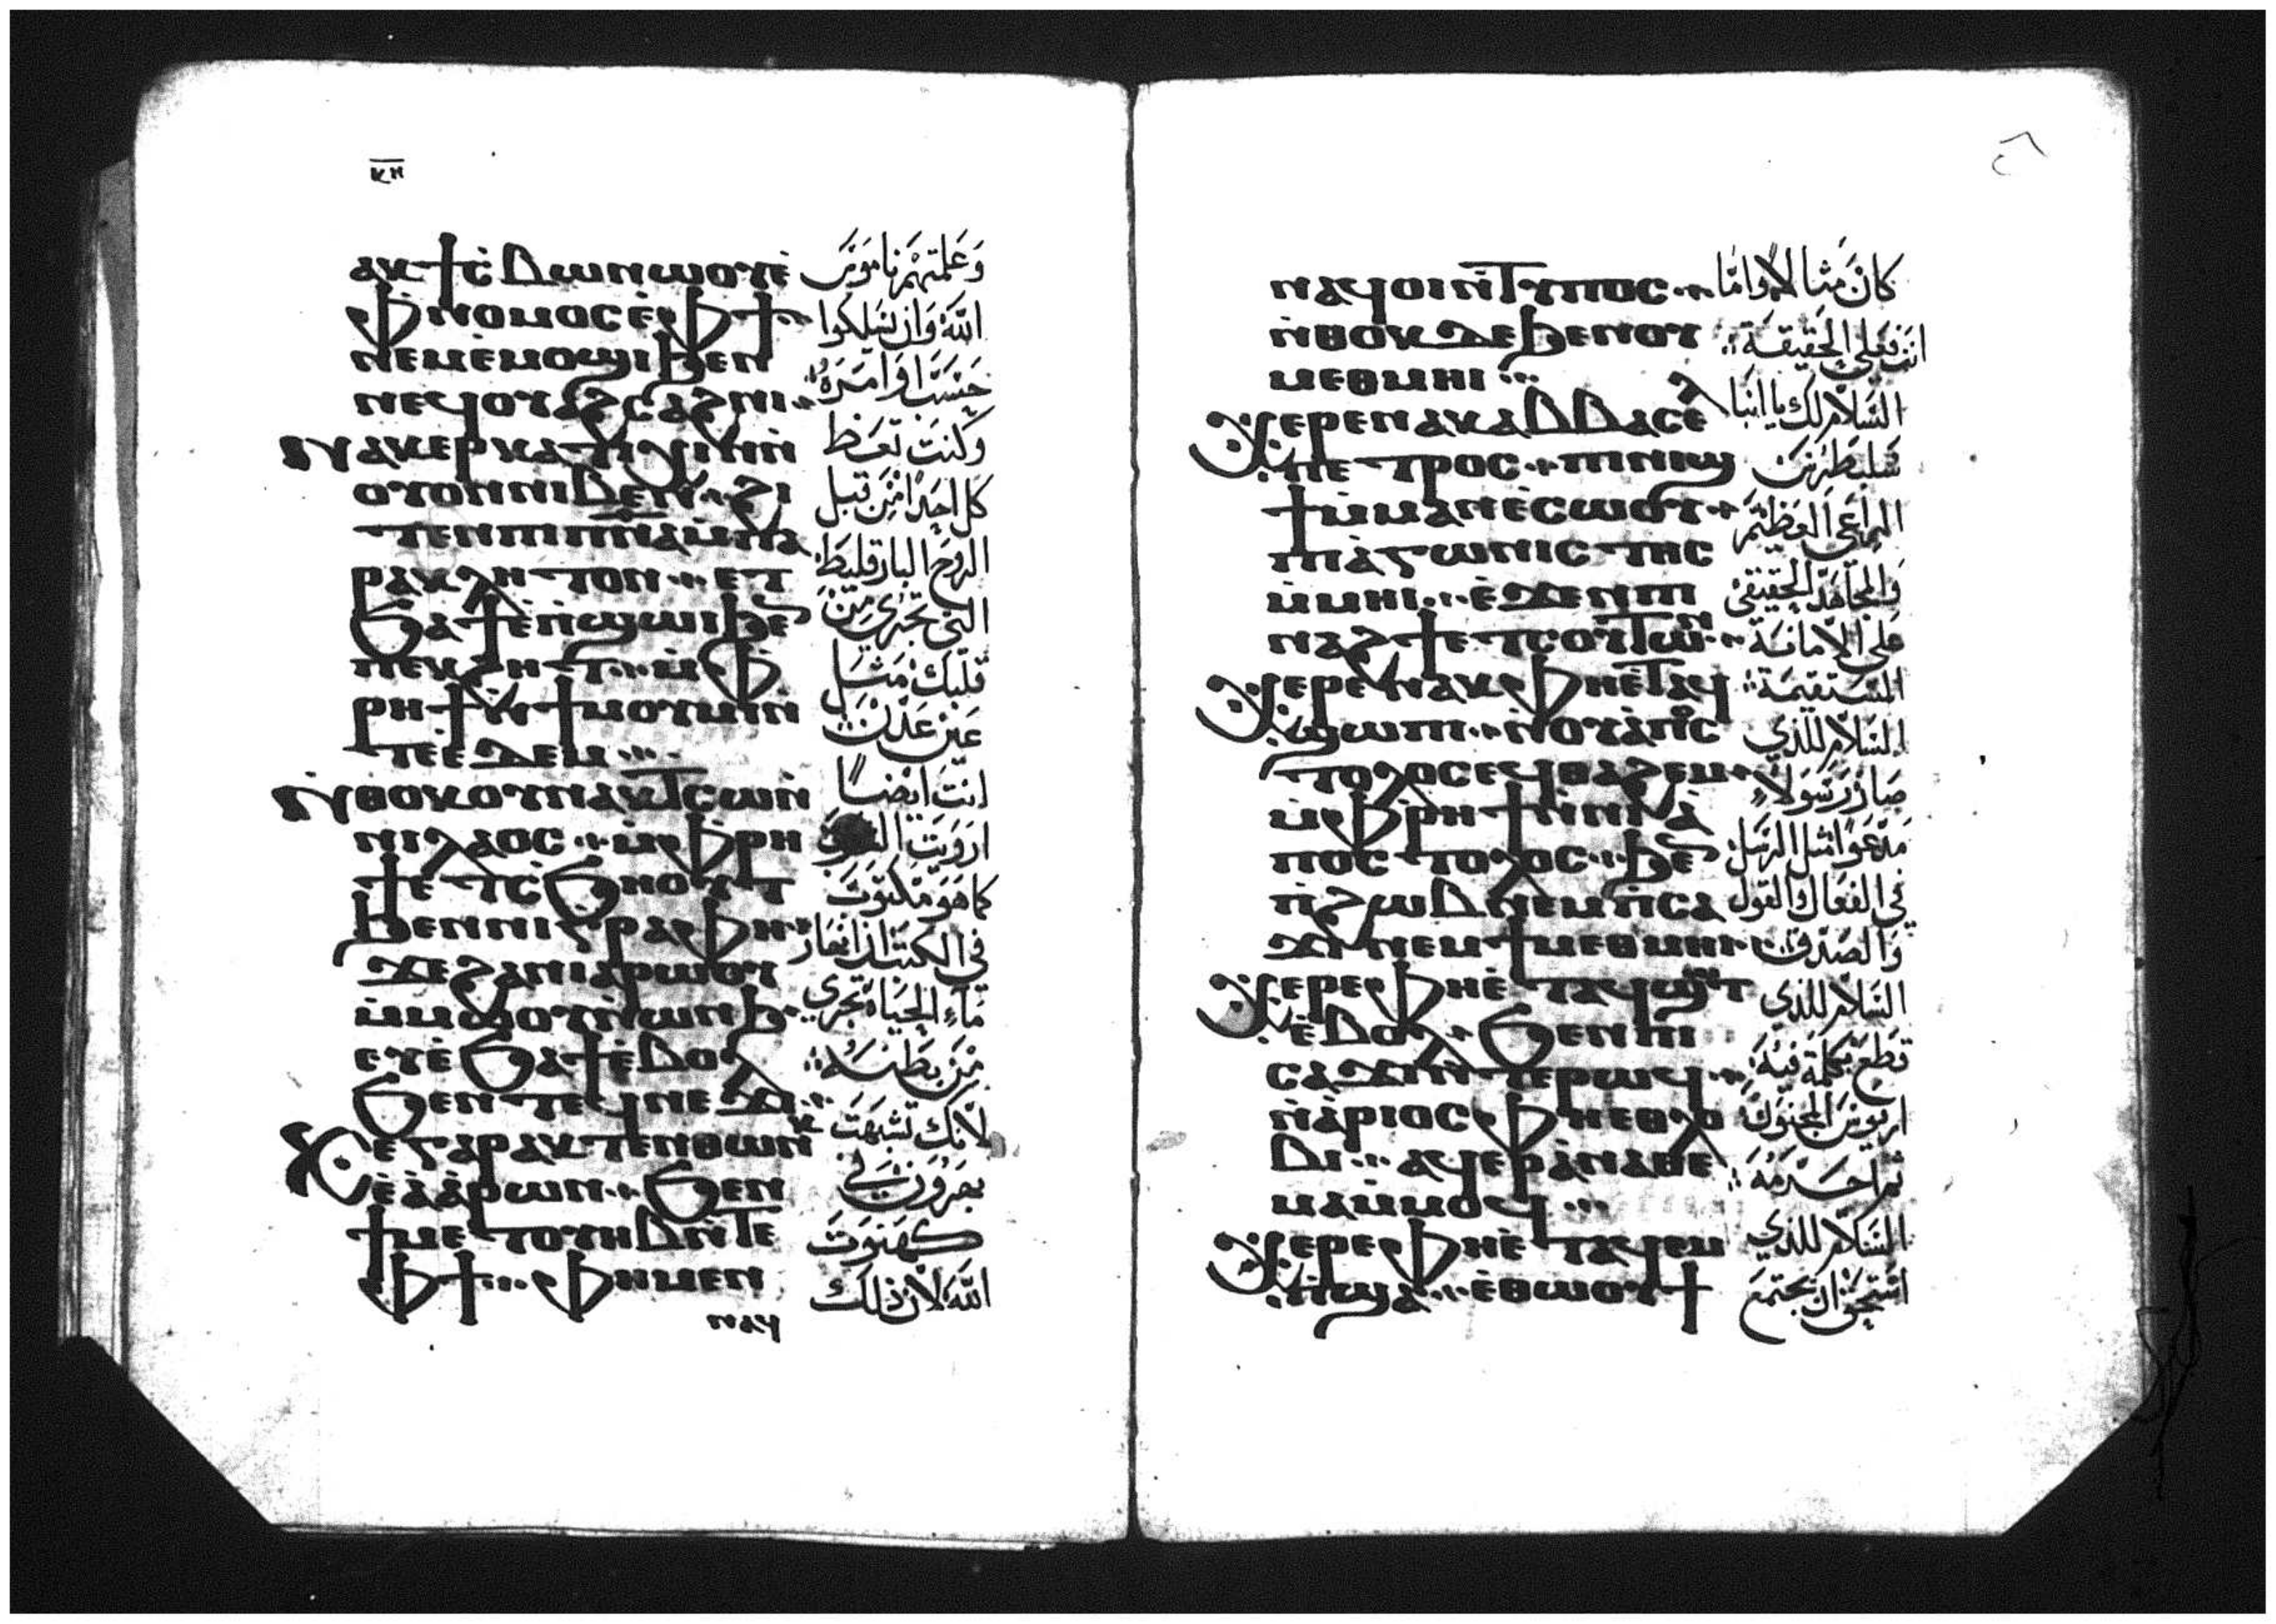 ⲕⲏ
ⲁⲕϯⲥ̀ⲃⲱ ⲛⲱⲟⲩ ⲉ̀
ⲫⲛⲟⲙⲟⲥ ⲉ̀ⲫϯ
ⲛⲉⲙ ⲉ̀ⲙⲟϣⲓ ϧⲉⲛ
ⲛⲉϥⲟⲩⲁϩⲥⲁϩⲛⲓ
ⲛⲁⲕⲉⲣⲕⲁⲧⲏⲭⲓⲛ ⲛ̀
ⲟⲩⲟⲛ ⲛⲓⲃⲉⲛ ⳾ ϩⲓ
ⲧⲉⲛ ⲡⲓⲡⲛ̅ⲁ̅ ⲙ̀ⲡⲁ
ⲣⲁⲕⲗⲏⲧⲟⲛ ⳾ ⲉⲧ
ϭⲁϯ ⲉⲛ̀ϣⲱⲓ ϧⲉ̅
ⲡⲉⲕϩⲏⲧ ⳾ ⲙ̀ⲫ
ⲣⲏϯ ⲛ̀ϯⲙⲟⲩⲙⲓ ⲛ̀
ⲧⲉ ⲉ̀ⲇⲉⲙ ⳾
ⲛ̀ⲑⲟⲕ ⲟⲩⲛ ⲁⲕⲧⲥⲱ ⲛ̀
ⲛⲓⲗⲁⲟⲥ ⳾ ⲙ̀ⲫⲣⲏ
ϯ ⲉⲧⲥ̀ϭⲏⲟⲩⲧ
ϧⲉⲛ ⲛⲓⲅⲣⲁⲫⲏ ⳾
ϫⲉ ϩⲁⲛⲓⲁⲣⲱⲟⲩ
ⲙ̀ⲙⲱⲟⲩ ⲛ̀ⲱⲛϧ
ⲉⲩⲉ̀ϭⲁϯ ⲉ̀ⲃⲟⲗ
ϭⲉⲛ ⲧⲉϥⲛⲉϫⲓ ⳾
ϫⲉ ⲅⲁⲣ ⲁⲕⲧⲉⲛⲑⲱⲛⲕ
ⲉ̀ⲁ̀ⲁ̀ⲣⲱⲛ ⳾ ϭⲉⲛ
ϯⲙⲉⲧⲟⲩⲏⲃ ⲛ̀ⲧⲉ
ⲫϯ ⳾ ⲫⲏ ⲙⲉⲛ
ⲛⲁϥ
وَعَلمتهم نَاموُس
اللّه وَان يَسلكوا
حَسَب اوَامَرَه
وَكنتَ تَعَظ
كل احَدٍ مِن قبل
الرَوح البارقليط
التى تجري مِن
قلبك مَثل
عَين عَدَن
انتَ ايضاً
ارويَت الشعوب
كما هَو مَكتوب
في الكتب اذ انهار
مَاء الحيَاة تجري
مَن بَطنه
لانك تشبهت
بهرون في
كهنوت
اللّه لان ذلك
ⲛⲁϥⲟⲓ ⲛ̀ⲧⲩⲡⲟⲥ ⳾
ⲛ̀ⲑⲟⲕ ⲇⲉ ϧⲉⲛ ⲟⲩ
ⲙⲉⲑⲙⲏⲓ ⳾
ⲭⲉⲣⲉ ⲛⲁⲕ ⲁⲃⲃⲁ ⲥⲉ̀
ⲡⲉⲧⲣⲟⲥ ⳾ ⲡⲓⲛⲓϣ
ϯ ⲙ̀ⲙⲁⲛⲉ̀ⲥⲱⲟⲩ ⳾
ⲡⲓⲁ̀ⲅⲱⲛⲓⲥⲧⲏⲥ
ⲙ̀ⲙⲏⲓ ⳾ ⲉ̀ϫⲉⲛ ⲡⲓ
ⲛⲁϩϯ ⲉⲧⲥⲟⲩⲧⲱⲛ ⳾
ⲭⲉⲣⲉ ⲛⲁⲕ ⲫⲏ ⲉ̀ⲧⲁϥ
ϣⲱⲡⲓ ⳾ ⲛ̀ⲟⲩⲁ̀ⲡⲟⲥ
ⲧⲟⲗⲟⲥ ⲉϥⲑⲁϩⲉⲙ ⳾
ⲙ̀ⲫⲣⲏϯ ⲛ̀ⲛⲓⲁ̀
ⲡⲟⲥⲧⲟⲗⲟⲥ ⳾ ϧⲉ̅
ⲡ̀ϩⲱⲃ ⲛⲉⲙ ⲡ̀ⲥⲁ
ϫⲓ ⲛⲉⲙ ϯⲙⲉⲑⲙⲏⲓ ⳾
ⲭⲉⲣⲉ ⲫⲏ ⲉ̀ⲧⲁϥϣⲱⲧ
ⲉ̀ⲃⲟⲗ ⳾ ϭⲉⲛ ⲡⲓ
ⲥⲁϫⲓ ⲛ̀ⲧⲉ ⲣⲱϥ ⳾
ⲛ̀ⲁ̀ⲣⲓⲟⲥ ⲫⲏ ⲉⲑⲗⲟ
ⲃⲓ ⳾ ⲁϥⲉⲣⲁ̀ⲛⲁⲑⲉ
ⲙⲁ ⲙ̀ⲙⲟϥ ⳾
ⲭⲉⲣⲉ ⲫⲏ ⲉ̀ⲧⲁϥⲉⲙ
ⲡ̀ϣⲁ ⳾ ⲉ̀ⲑⲱⲟⲩϯ
كَانَ مثَالاً وَامَّا
انتَ فعلى الحَقيقَة
السَّلامُ لك يَا انبا
سَلبَطرُس
الرَاعَى العَظيمَ
وَالمجَاهَد الحَقيقي
عَلى الامانَة
المَستَقيمَة
السَلامُ للذي
صَار رَسَولاً
مَدعَواً مثل الرسَل
في الفعَال والقول
وَالصَدق
السَلام للذي
قطَع بكلمة فيه
اريوسَ المجنون
ثم احرَمَه
السَلام للذي
استحق ان يجتمَع